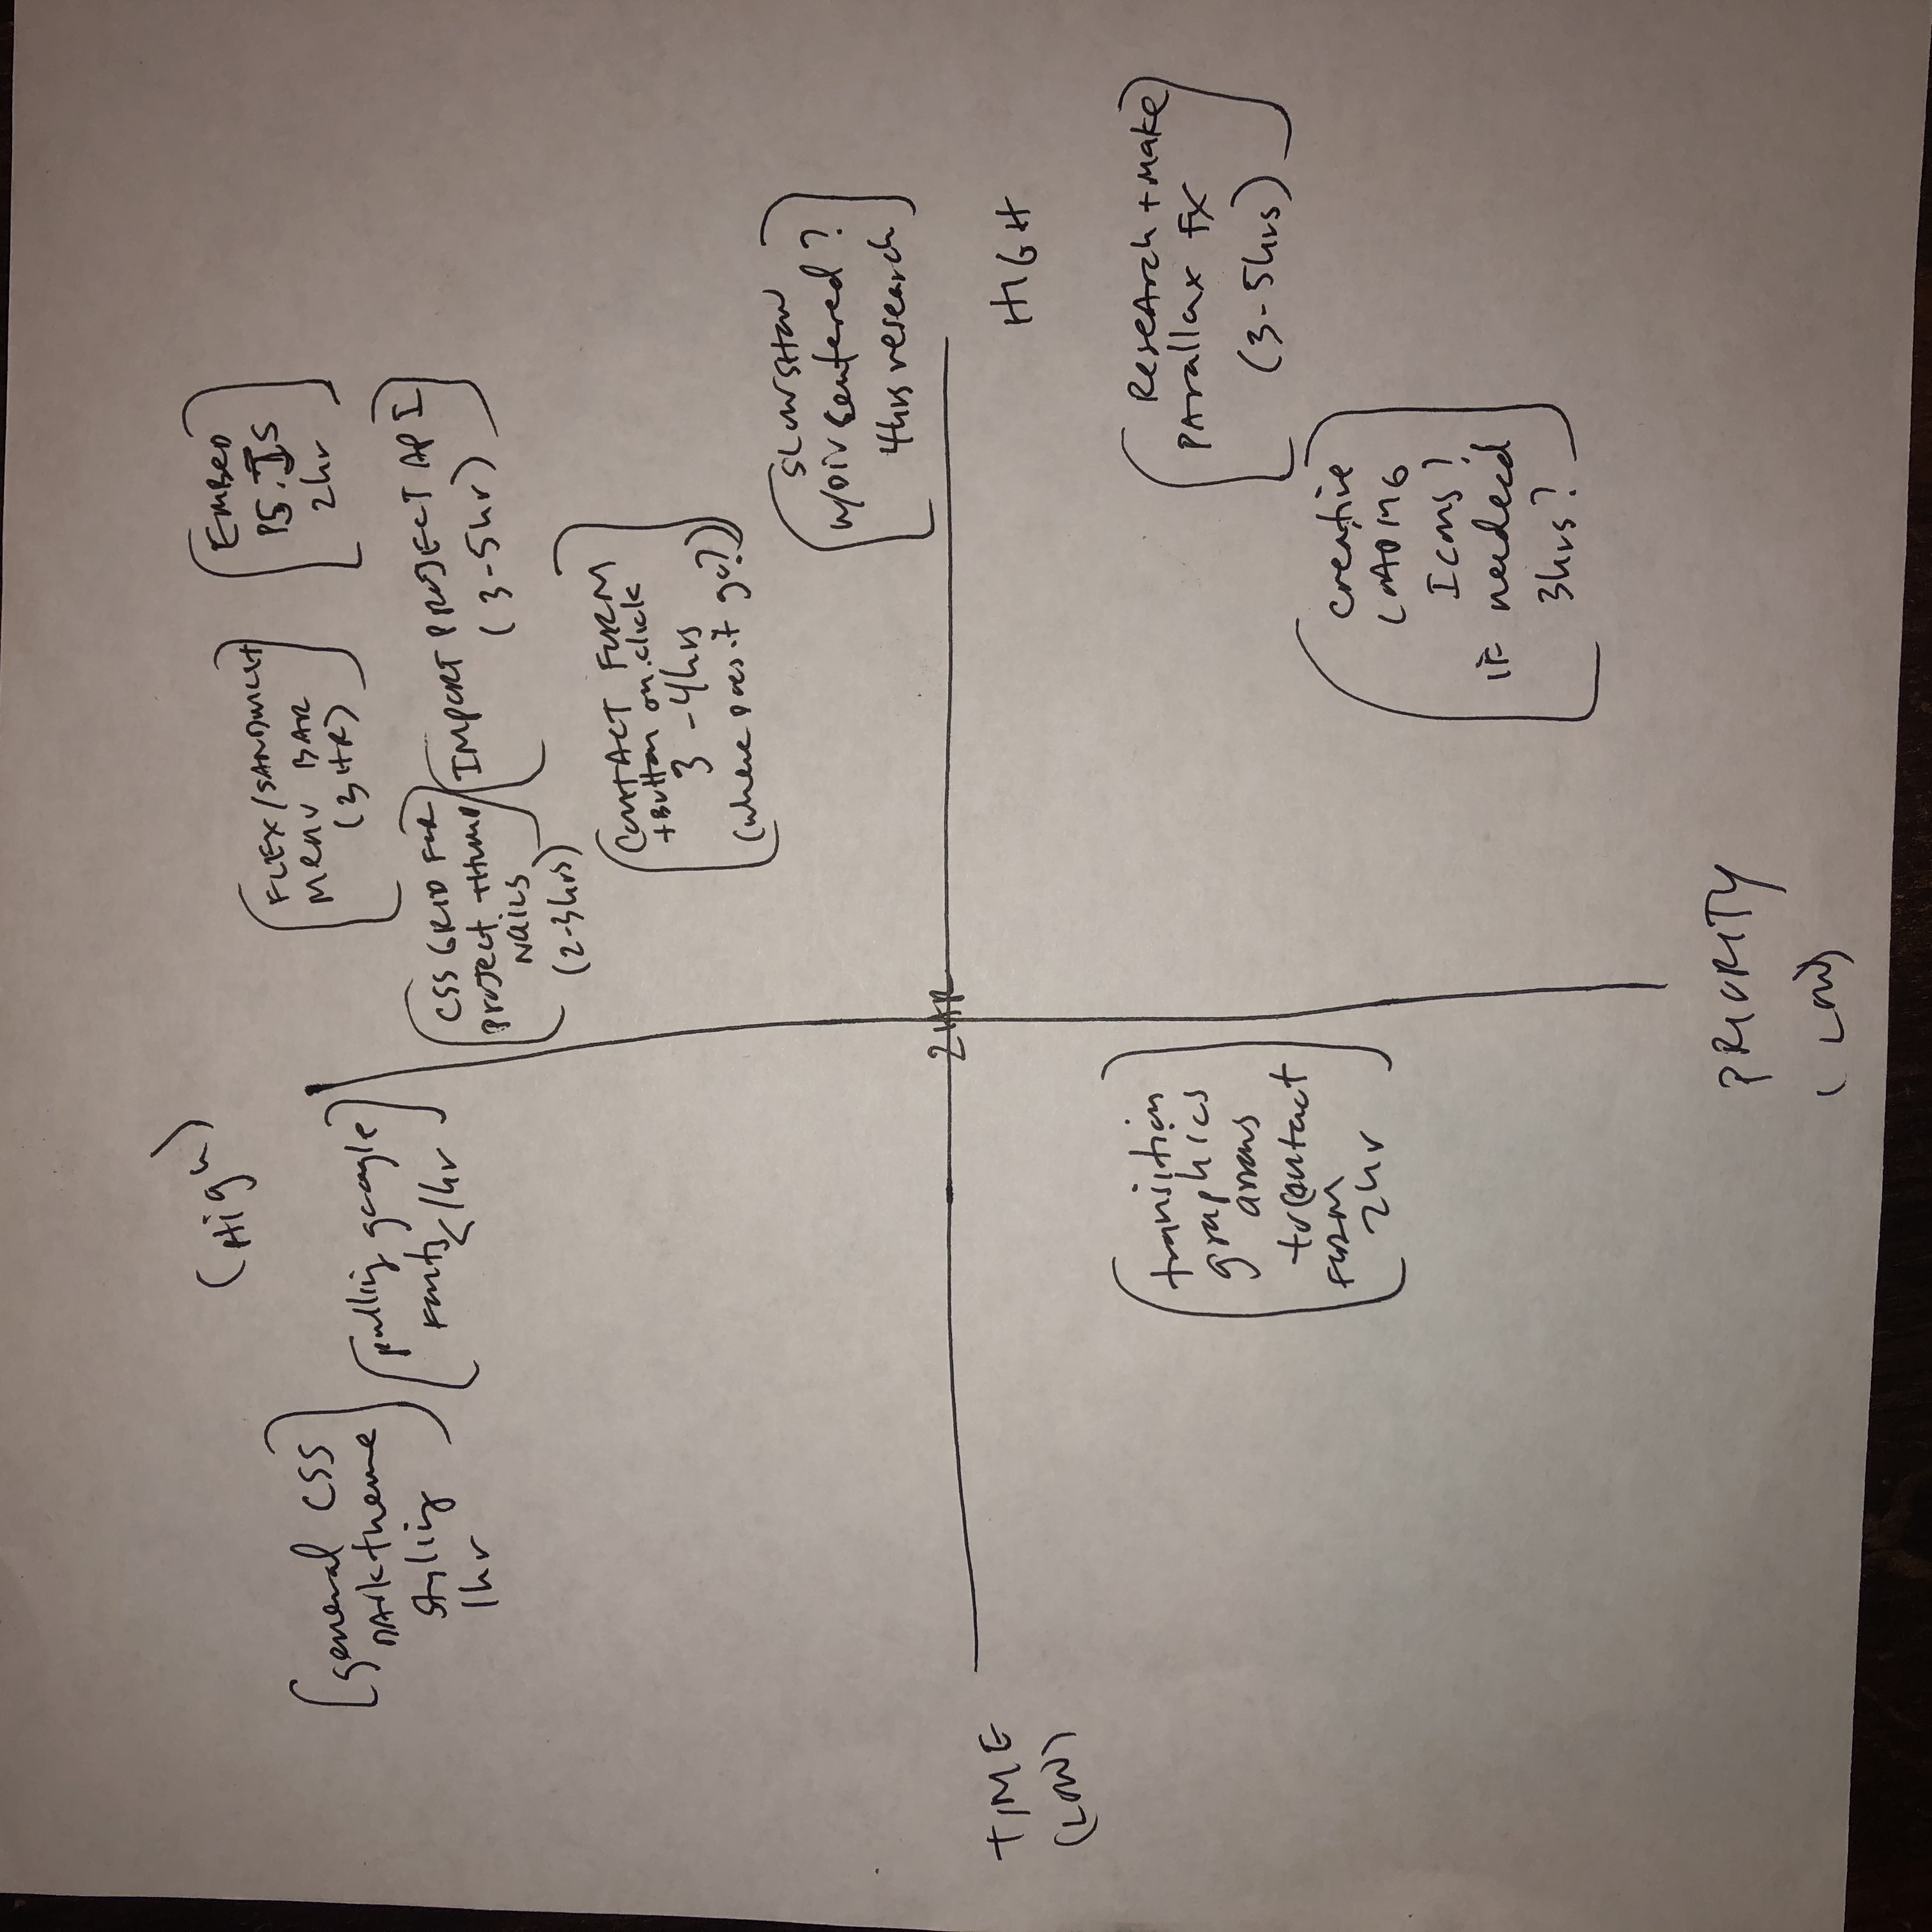 (High)
general CSS
DArk theme
styling
1hr
pulling google
Fonts <1hr
FLEX/SANDWICH
MENU BAR
(3HR)
EMBED
P5.JS
2hr
CSS GRID FOR
PROJECT THUMB
NAILS
(2-3hrs)
IMPORT PROJECT API
(3-5hr)
CONTACT FORM
+Button on.click
3 -4hrs
(where does it go?)
w/DIV centered?
4hrs research
2HR
TIME
(LOW)
HIGH
transition
graphics
arrows
to contact
FORM
2hr
ReseArch + make
PArallax FX
(3-5hrs)
creative
LOADING
Icons?
IF needed
3hrs?
PRIORITY
(LOW)